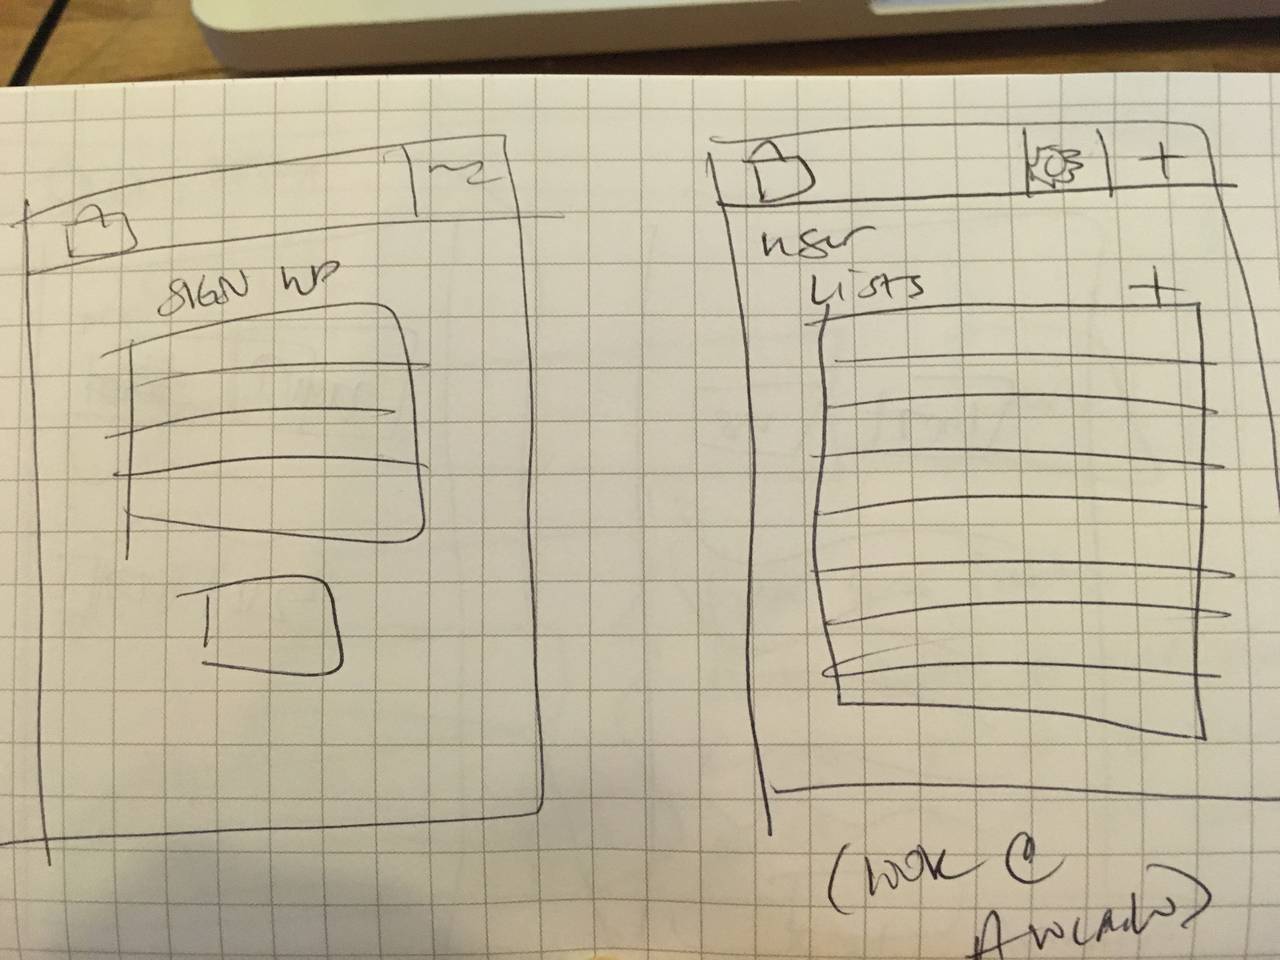 SIGN UP
user
Lists
+
(LOOK @
AVOCADO)